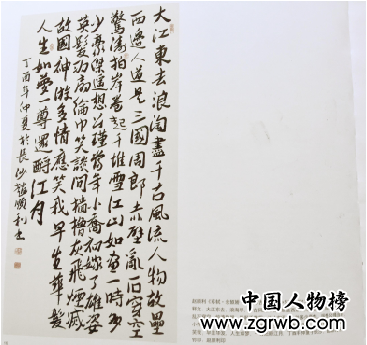 大江東去浪淘盡千古風流人物故壘
西邊人道是三國周郎赤壁亂石穿空
驚濤拍岸卷起千堆雪江山如畫一時多
少豪傑遥想公瑾當年小喬初嫁了雄姿
英發羽扇綸巾笑談間檣櫓灰飛煙滅
故國神遊多情應笑我早生華髮
人生如夢一尊還酹江月
丁酉年仲夏於長沙趙順利書
中国人物榜
www.zgrwb.com